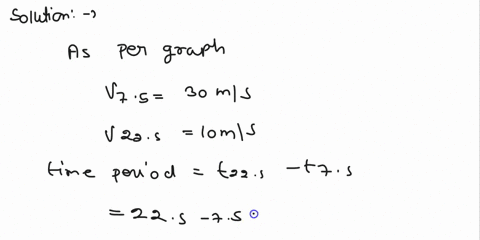 Solution:->
As per graph
V7.5= 30 m/s
V22.s = 10m/s
time period = t22.s - t7.s
= 22.s -7.5